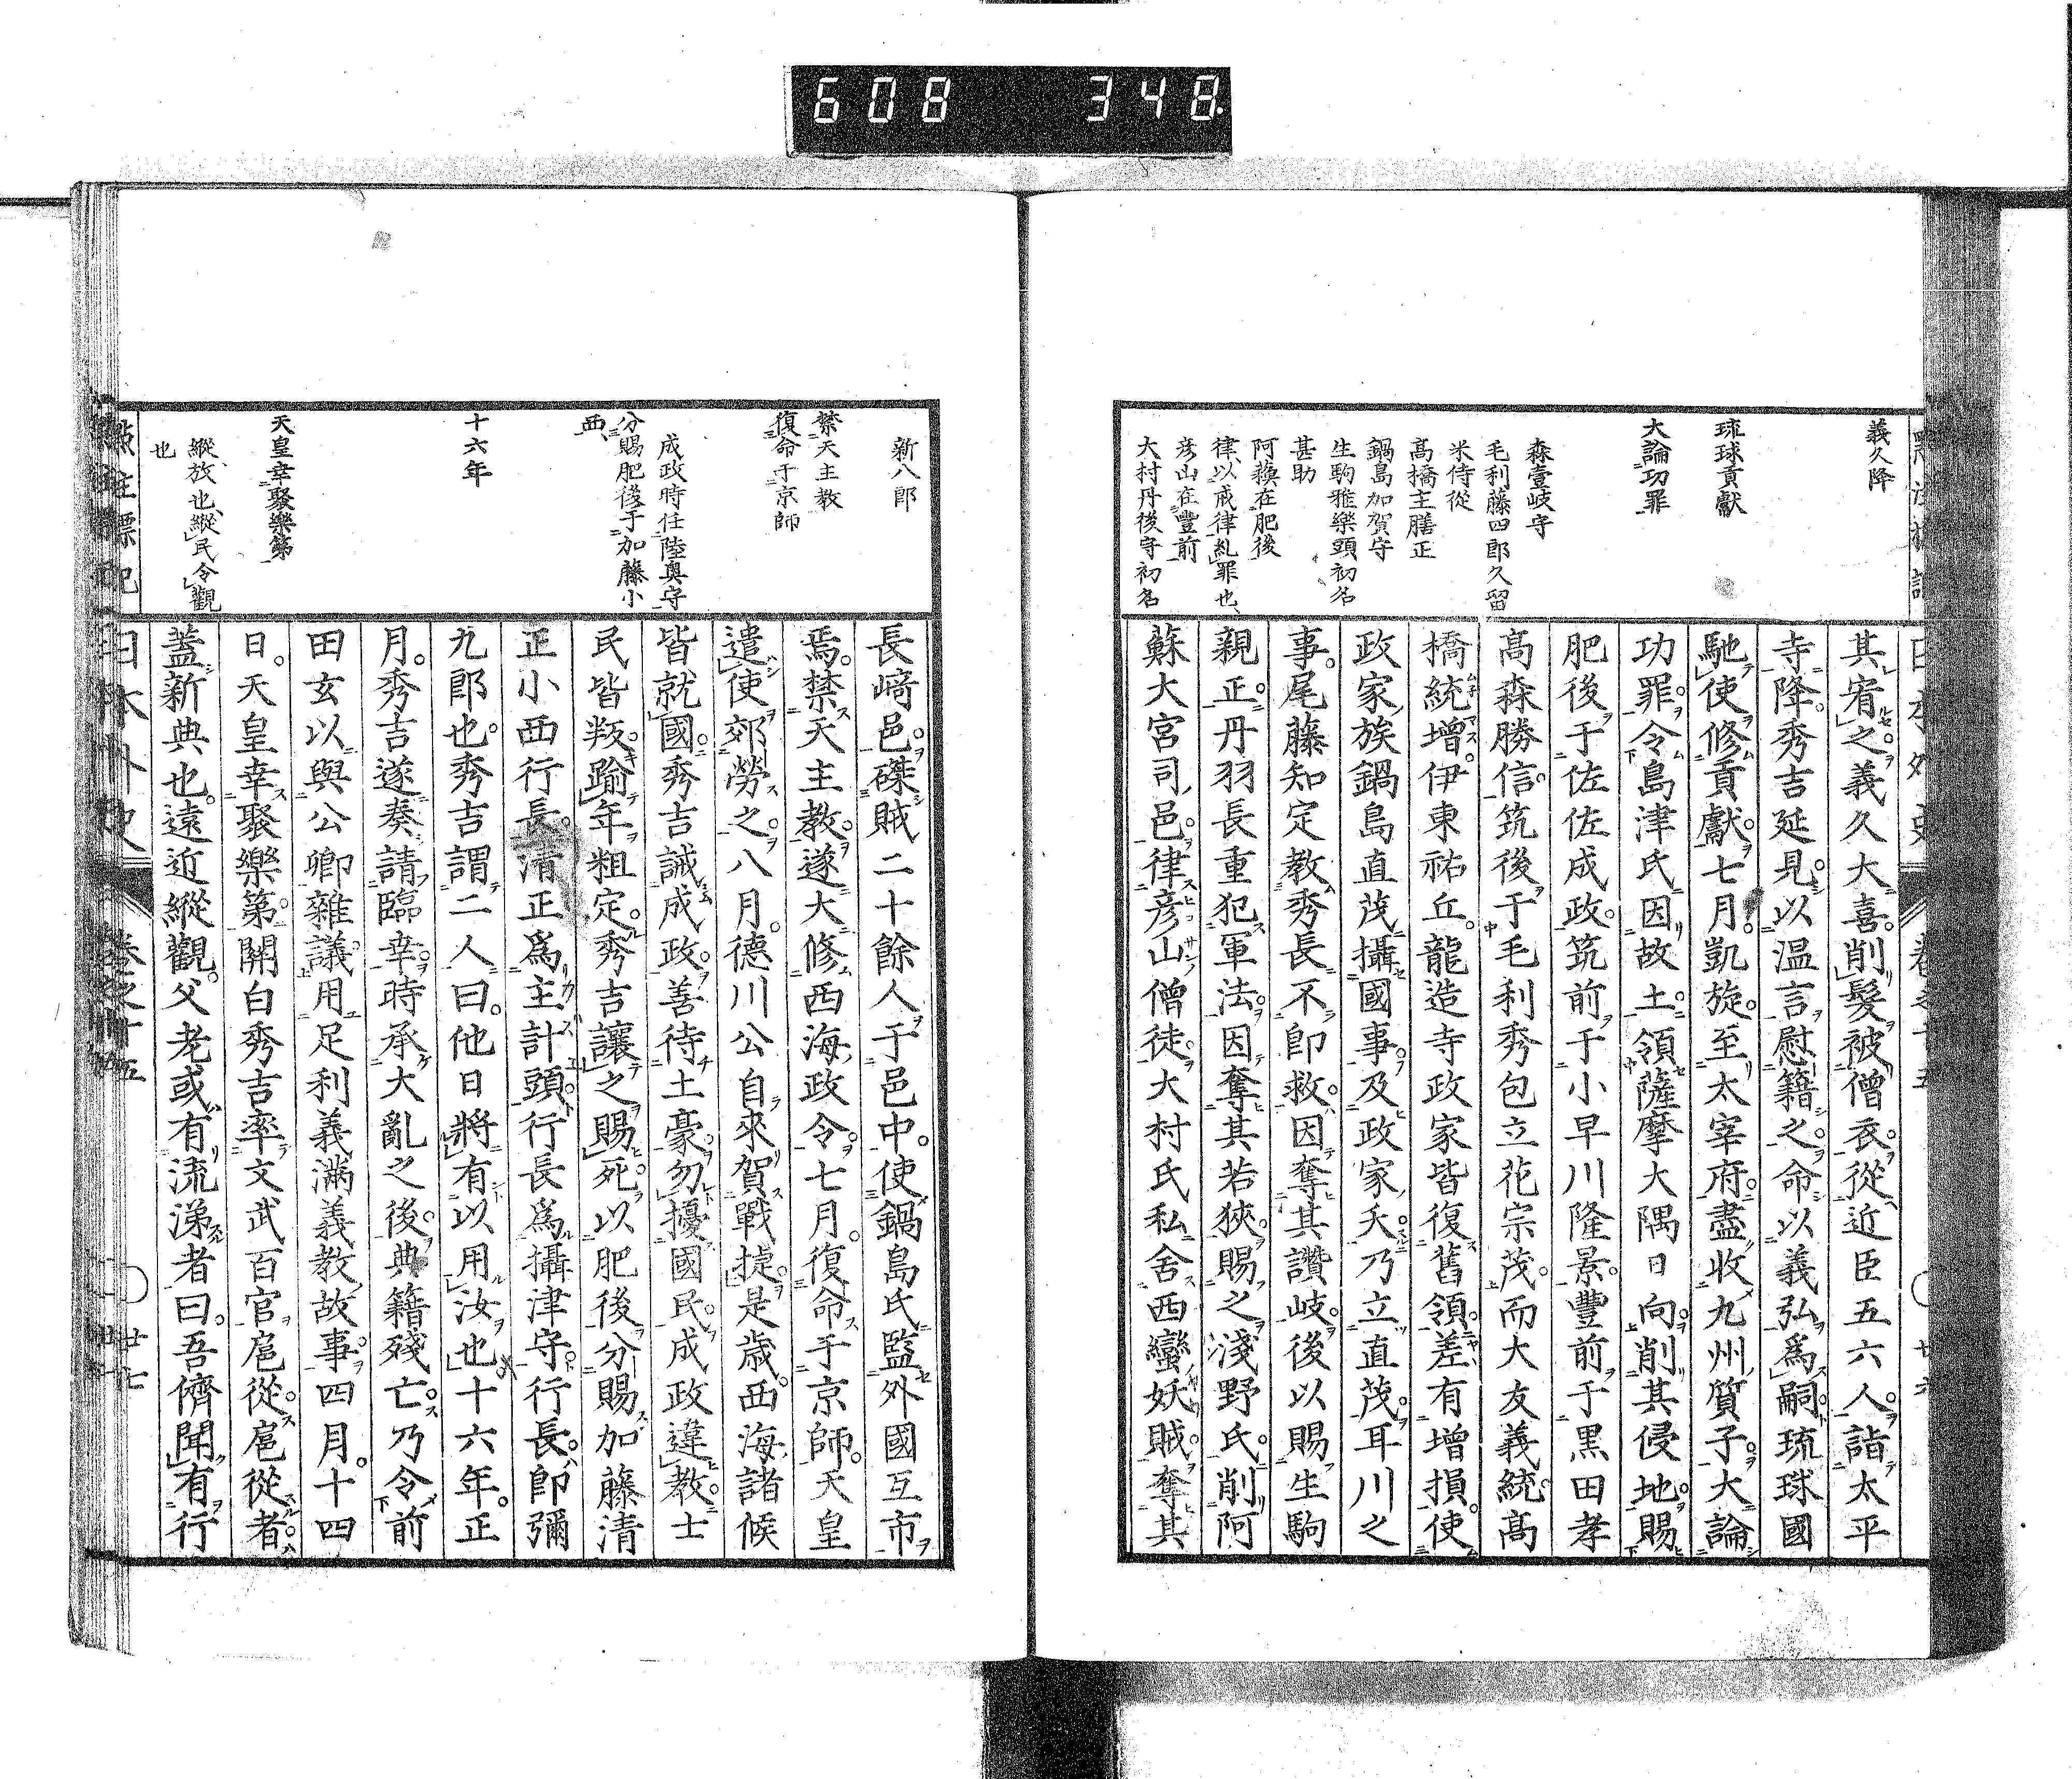 608 348
義久降
琉球貢獻
大論功罪
森壹岐守
毛利藤四郎久留
米侍從
高橋主膳正
鍋島加賀守
生駒雅樂頭初名
甚助
阿蘓在肥後
律、以戒律糺罪也、
彦山在豐前
大村丹後守初名
其宥之義久大喜。削髮被僧衣從近臣五六人。詣太平
寺降。秀吉延見。以温言慰籍之。命以義弘爲嗣。琉球國
馳使修貢獻。七月。凱旋。至太宰府。盡收九州質子。大論
功罪。令島津氏因故土。領薩摩大隅日向。削其侵地。賜
肥後于佐佐成政。筑前于小早川隆景。豐前于黒田孝
高森勝信。筑後于毛利秀包立花宗茂。而大友義統高
橋統增。伊東祐丘。龍造寺政家皆復舊領。差有增損。使
政家族鍋島直茂攝國事。及政家夭。乃立直茂。耳川之
事。尾藤知定教秀長不即救。因奪其讚岐。後以賜生駒
親正。丹羽長重犯軍法。因奪其若狹。賜之淺野氏。削阿
蘇大宮司邑。律彦山僧徒。大村氏私舍西蠻妖賊。奪其
新八郎
禁天主教
復命于京師
成政時任陸奥守
分賜肥後于加藤小
西、
十六年
天皇幸聚樂第
縱、放也、縱民令觀
也
長﨑邑。磔賊二十餘人于邑中。使鍋島氏監外國互市
焉。禁天主教。遂大修西海政令。七月。復命于京師。天皇
遣使郊勞之。八月。德川公自來賀戰捷。是歳。西海諸候
皆就國。秀吉誡成政。善待土豪。勿擾國民。成政違教。士
民皆叛。踰年粗定。秀吉讓之。賜死。以肥後分賜加藤清
正小西行長。清正爲主計頭。行長爲攝津守。行長。即彌
九郎也。秀吉謂二人曰。他日將有以用汝也。十六年。正
月。秀吉遂奏請臨幸。時承大亂之後。典籍殘亡。乃令前
田玄以與公卿雜議。用足利義滿義教故事。四月。十四
日。天皇幸聚樂第。關白秀吉率文武百官扈從。扈從者
蓋新典也。遠近縱觀。父老或有流涕者曰。吾儕聞有行